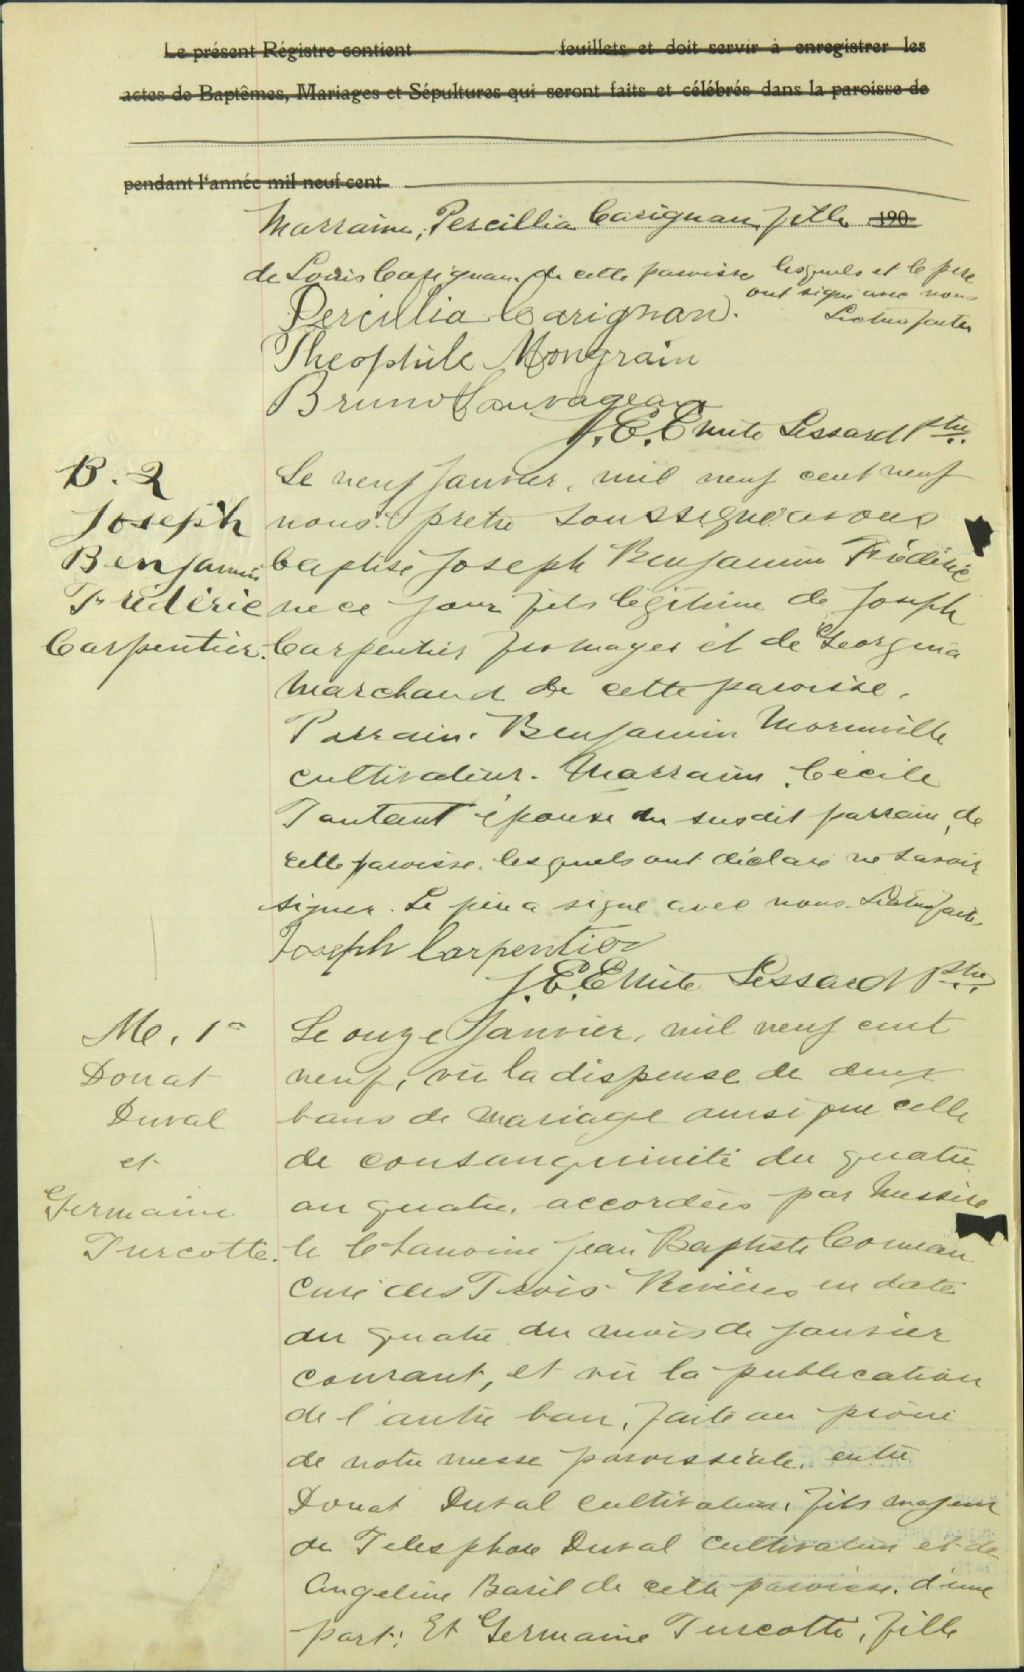 Le présent Régistre contient feuillets et doit servir à enregistrer les
actes de Baptêmes, Mariages et Sépultures qui seront faits et célébrés dans la paroisse de
pendant l'année mil neuf cent
190
Marraine, Percillia Carignan, fille
de Louis Carignan de cette paroisse lesquels et le père
ont signé avec nous
Lecture faite
Percillia Carignan.
Theophile Mongrain
Bruno Sauvageau
J. E. Emile Lessard Ptre.
B. 2
Joseph
Benjamin
Frédéric
Carpentier.
Le neuf Janvier, mil neuf cent neuf
nous prêtre soussigné avons
baptisé Joseph Benjamin Frédéric
né ce jour fils légitime de Joseph
Carpentier fromager et de Georgina
Marchand de cette paroisse.
Parrain. Benjamin Morinville
cultivateur. Marraine, Cécile
Tautant épouse du susdit parrain, de
cette paroisse. lesquels ont déclaré ne savoir
signer. Le père a signé avec nous. Lecture faite.
Joseph Carpentier
J. E. Emile Lessard Ptre.
M. 1
Donat
Duval
et
Germaine
Turcotte.
Le onze Janvier, mil neuf cent
neuf, vu la dispense de deux
bans de mariage ainsi que celle
de consanguinité du quatre
au quatre, accordées par Messire
le Chanoine Jean Baptiste Comeau
Curé des Trois-Rivières en date
du quatre du mois de Janvier
courant, et vu la publication
de l'autre ban, faite au prône
de notre messe paroissiale, entre
Donat Duval cultivateur, fils majeur
de Telesphore Duval cultivateur et de
Angeline Baril de cette paroisse, d'une
part; Et Germaine Turcotte, fille